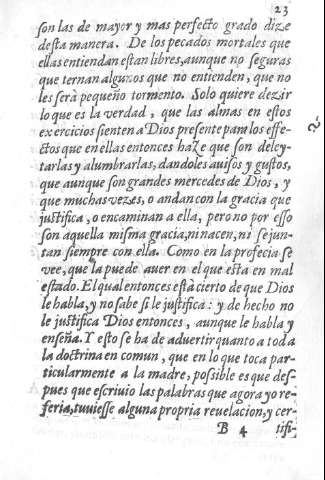 23
son las de mayor y mas perfecto grado dize
desta manera. De los pecados mortales que
ellas entiendan estan libres, aunque no seguras
que ternan algunos que no entienden, que no
les serà pequeño tormento. Solo quiere dezir
lo que es la verdad, que las almas en estos
exercicios sienten a Dios presente para los effe-
ctos que en ellas entonces haze que son deley-
tarlas y alumbrarlas, dandoles auisos y gustos,
que aunque son grandes mercedes de Dios, y
que muchas vezes, o andan con la gracia que
justifica, o encaminan a ella, pero no por esso
son aquella misma gracia, ni nacen, ni se jun-
tan siempre con ella. Como en la profecia se
vee, que la puede auer en el que esta en mal
estado. El qual entonces està cierto de que Dios
le habla, y no sabe si le justifica: y de hecho no
le justifica Dios entonces, aunque le habla y
enseña. Y esto se ha de aduertir quanto a toda
la doctrina en comun, que en lo que toca par-
ticularmente a la madre, possible es que des-
pues que escriuio las palabras que agora yo re-
feria, tuuiesse alguna propria reuelacion, y cer-
B 4 tifi-